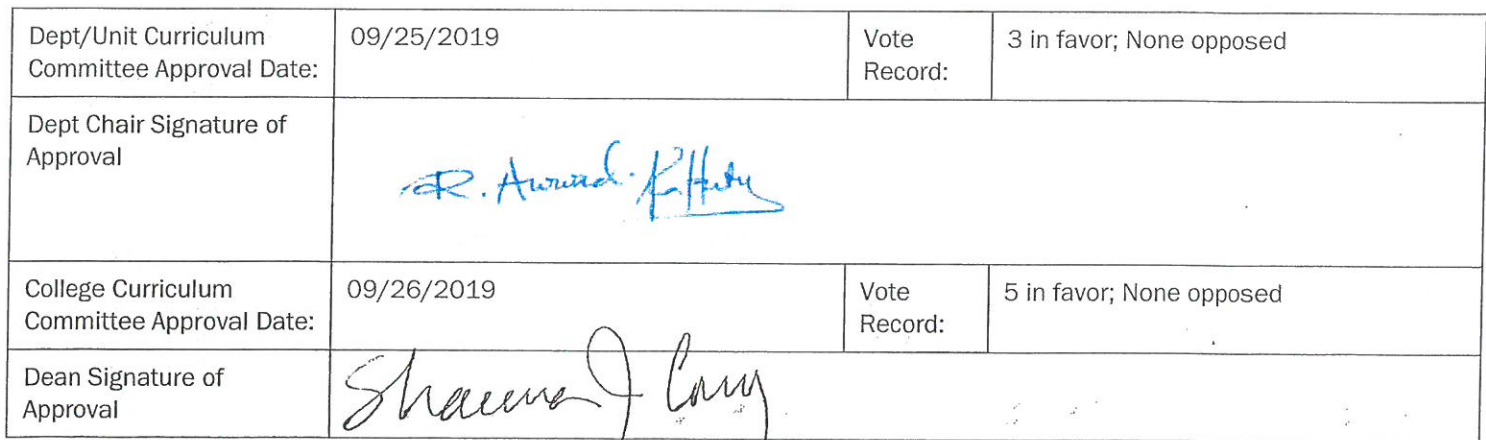 Dept/Unit Curriculum
Committee Approval Date:
09/25/2019
Vote
Record:
3 in favor; None opposed
Dept Chair Signature of
Approval
R.
College Curriculum
Committee Approval Date:
09/26/2019
Vote
Record:
5 in favor; None opposed
Dean Signature of
Approval
J